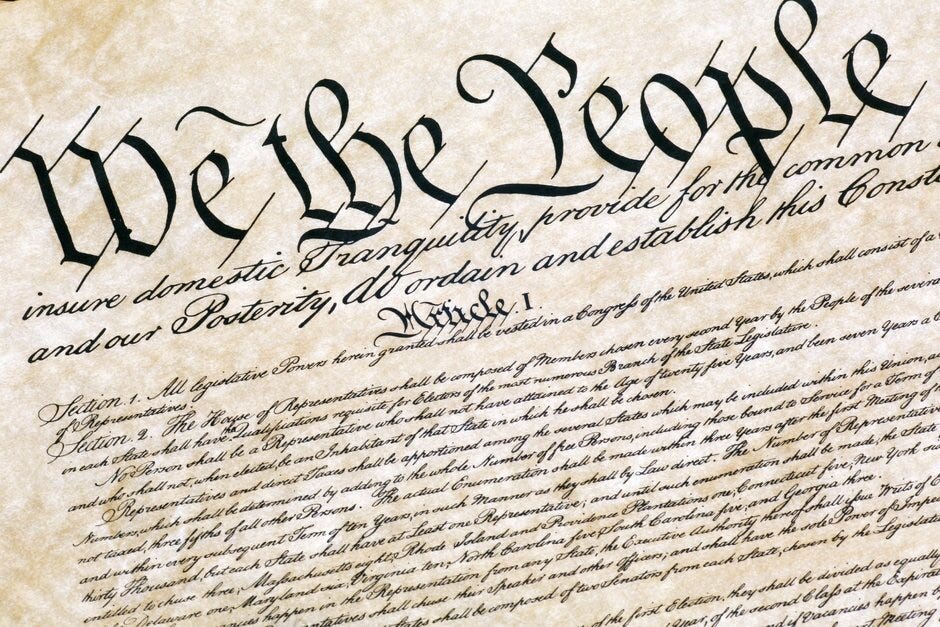 We the People
insure domestic Tranquility, provide for the common
and our Posterity, do ordain and establish this Const
Article. I.
Section. 1. All legislative Powers herein granted shall be vested in a Congress of the United States, which shall consist of a
of Representatives.
Section. 2. The House of Representatives shall be composed of Members chosen every second Year by the People of the several
in each State shall have the Qualifications requisite for Electors of the most numerous Branch of the State Legislature.
No Person shall be a Representative who shall not have attained to the Age of twenty five Years, and been seven Years a
and who shall not, when elected, be an Inhabitant of that State in which he shall be chosen.
Representatives and direct Taxes shall be apportioned among the several States which may be included within this Union,
Numbers, which shall be determined by adding to the whole Number of free Persons, including those bound to Service for a Term of
not taxed, three fifths of all other Persons. The actual Enumeration shall be made within three Years after the first Meeting of
and within every subsequent Term of ten Years, in such Manner as they shall by Law direct. The Number of Representatives
thirty Thousand, but each State shall have at Least one Representative; and until such enumeration shall be made, the State
entitled to chuse three, Massachusetts eight, Rhode Island and Providence Plantations one, Connecticut five, New York
Delaware one, Maryland six, Virginia ten, North Carolina five, South Carolina five, and Georgia three.
happen in the Representation from any State, the Executive Authority thereof shall issue Writs of
Representatives shall chuse their Speaker and other Officers; and shall have the sole Power of
States shall be composed of two Senators from each State, chosen by the Legislature
of the first Election, they shall be divided as equally
Year, of the second Class at the
and if Vacancies happen
Meeting